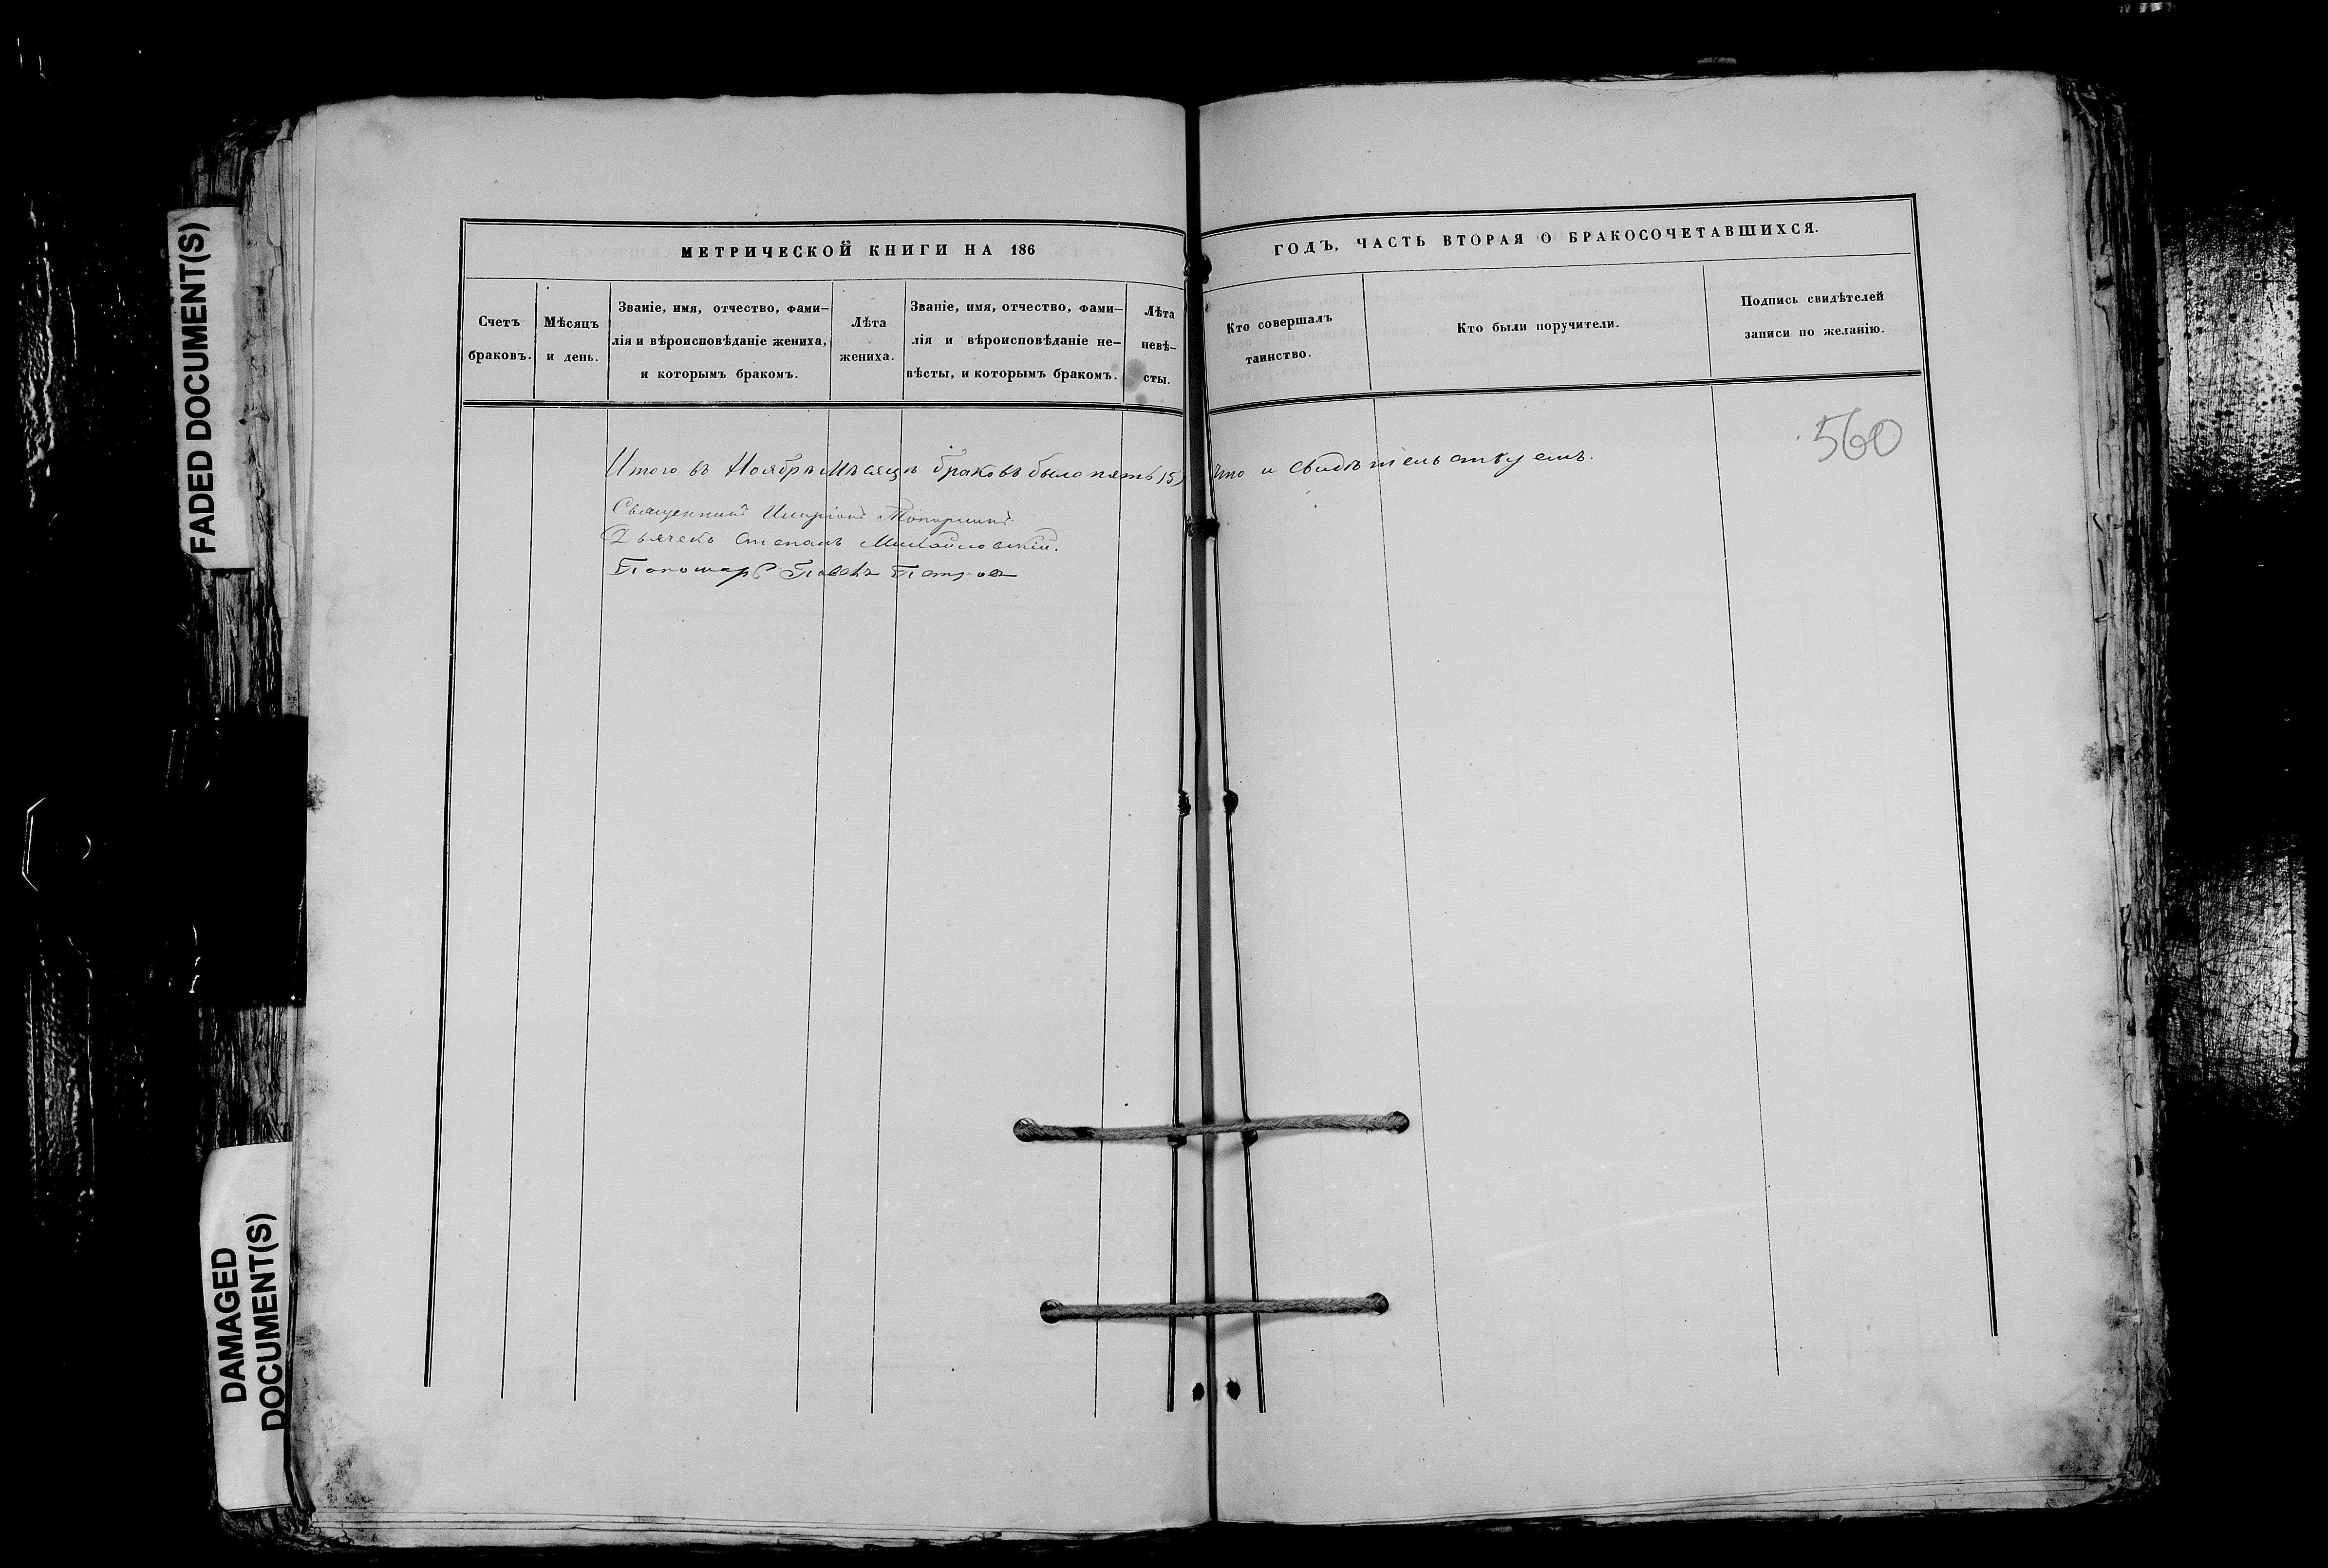 FADED DOCUMENT(S)
DAMAGED
DOCUMENT(S)
МЕТРИЧЕСКОЙ КНИГИ НА 186
Счетъ
браковъ.
Мѣсяцъ
и день.
Званіе, имя, отчество, фами-
лія и вѣроисповѣданіе жениха,
и которымъ бракомъ.
Лѣта
жениха.
Званіе, имя, отчество, фами-
лія и вѣроисповѣданіе не-
вѣсты, и которымъ бракомъ.
Лѣта
невѣ-
сты.
Итого въ Ноябрѣ Мѣсяцѣ браковъ было пять (5)
Священникъ
Дьячекъ Степанъ Михайловскій.
Пономарь Павелъ Петровъ
ГОДЪ, ЧАСТЬ ВТОРАЯ О БРАКОСОЧЕТАВШИХСЯ.
Кто совершалъ
таинство.
Кто были поручители.
Подпись свидѣтелей
записи по желанію.
560
что и свидѣтельствуемъ.